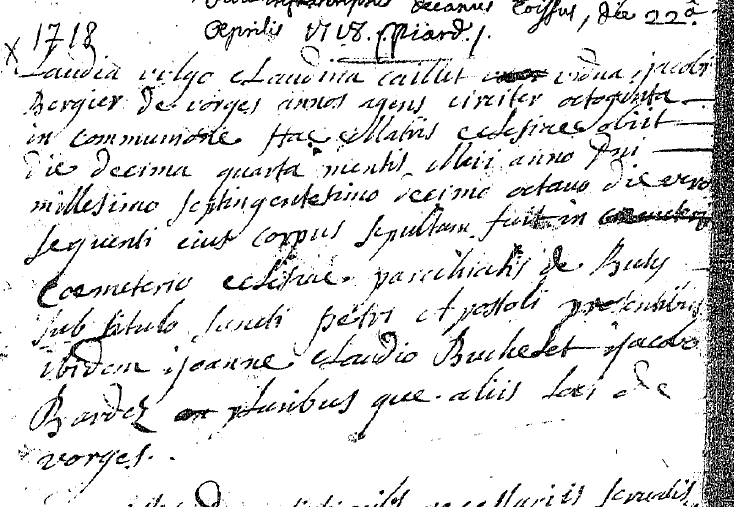 decanus Toissus, die 22ª
Aprilis 1718. Piard.
x 1718
Laudia vulgo Claudina caillet vidua jacobi
Bergier de vorges annos agens circiter octogenta
in communione Stae Matris eclesiae obiit
die decima quarta mensis Maii anno Dni
millesimo septingentesimo decimo octavo die vero
sequenti eius corpus sepultum fuit in
coemeterio eclesiae parochialis de Buly
sub titulo sancti petri Apostoli presentibus
ibidem joanne Claudio Buchelet jacobo
Bardez pluribus que aliis loci de
vorges.